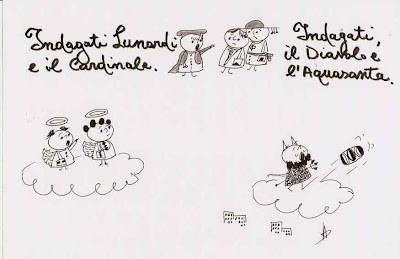 Indagati Lunardi
e il Cardinale.
Indagati,
il Diavolo e
l'Aquasanta.